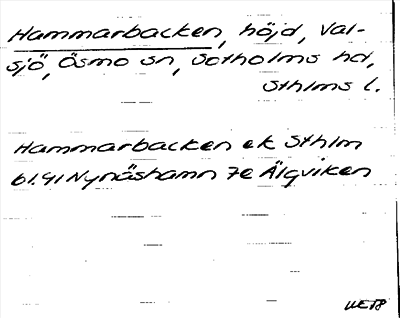 Hammarbacken, höjd, Val-
sjö, Ösmo sn, Sotholms hd,
Sthlms l.
Hammarbacken ek Sthlm
61.41 Nynäshamn 7e Älgviken